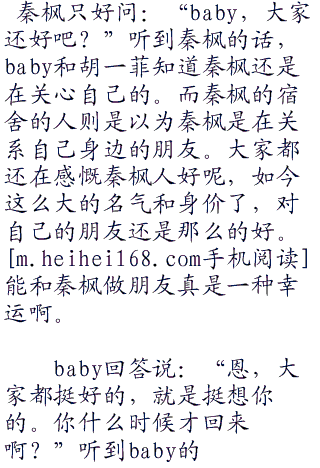 秦枫只好问：“baby，大家
还好吧？”听到秦枫的话，
baby和胡一菲知道秦枫还是
在关心自己的。而秦枫的宿
舍的人则是以为秦枫是在关
系自己身边的朋友。大家都
还在感慨秦枫人好呢，如今
这么大的名气和身价了，对
自己的朋友还是那么的好。
[m.heihei168.com手机阅读]
能和秦枫做朋友真是一种幸
运啊。
baby回答说：“恩，大
家都挺好的，就是挺想你
的。你什么时候才回来
啊？”听到baby的